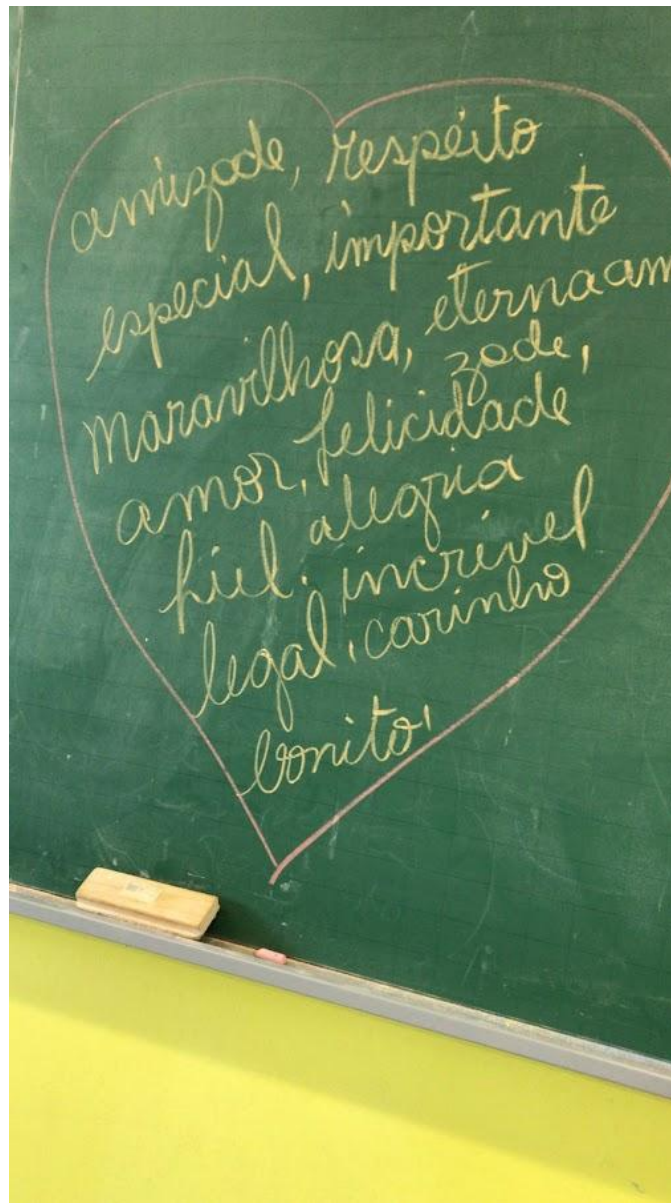 amizade, respeito
especial, importante
maravilhosa, eterna am
zade,
amor, felicidade
fiel. alegria
legal, incrível
carinho
bonito,